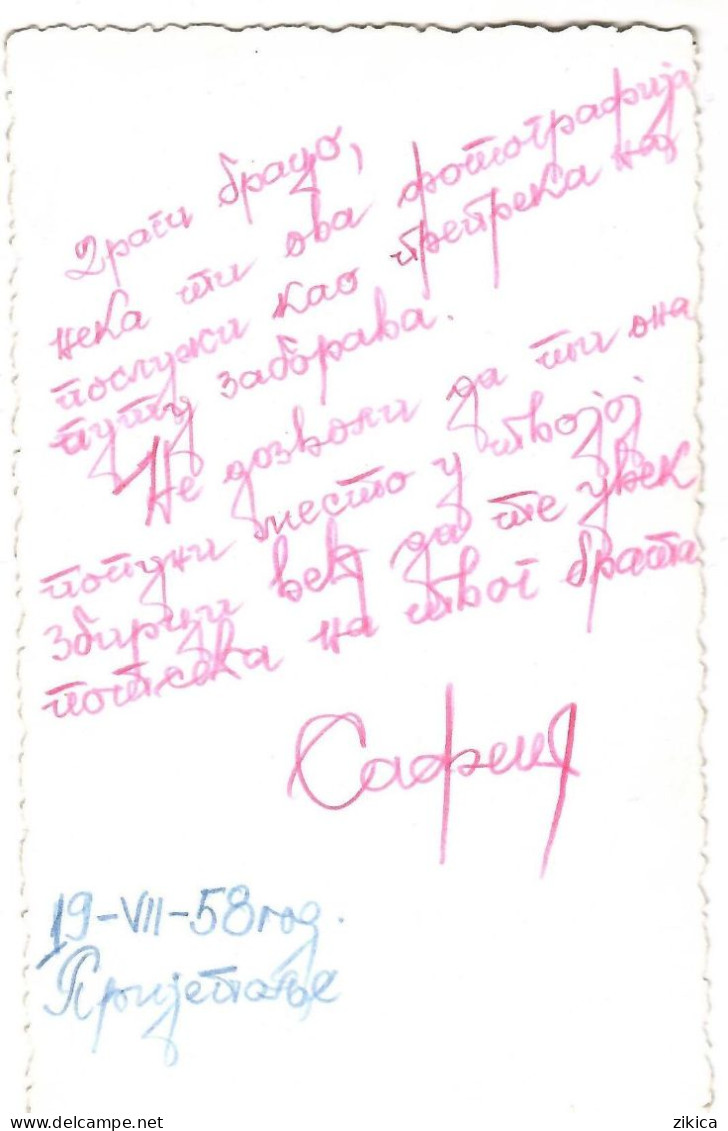 Драги брацо,
нека ти ова фотографија
послужи као препрека на
путу заборава.
Не дозволи да ти она
попуни место у твојој
збирци већ да те увек
потсећа на твог брата
19-VII-58 год.
Пријепоље
zikica
www.delcampe.net